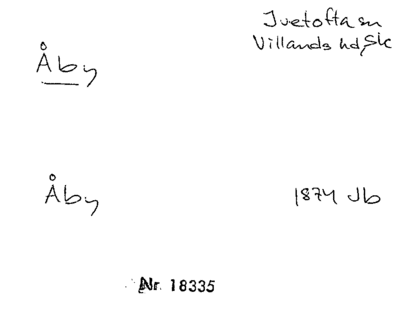 Ivetofta sn
Villands hd, Sk
Åby
Åby
1874 Jb
Nr. 18335